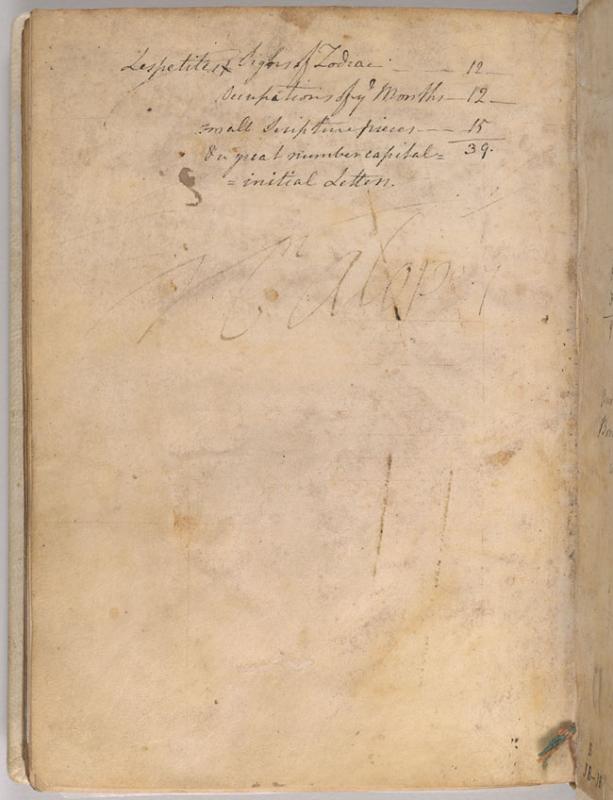 Les petites Signs of Zodiac — 12 —
Occupations of ye Months — 12 —
small Scripture pieces — 15
& a great number capital= 39.
= initial Letters.